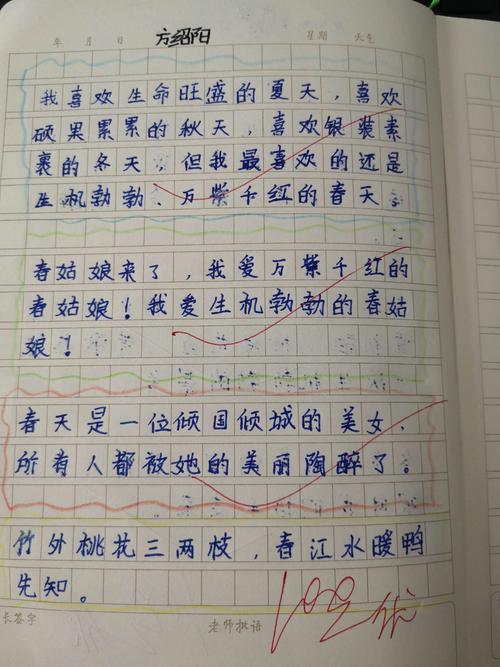 年 月 日 方绍阳 星期 天气
我喜欢生命旺盛的夏天，喜欢
硕果累累的秋天，喜欢银装素
裹的冬天，但我最喜欢的还是
生机勃勃、万紫千红的春天。
春姑娘来了，我爱万紫千红的
春姑娘！我爱生机勃勃的春姑
娘！
春天是一位倾国倾城的美女，
所有人都被她的美丽陶醉了。
竹外桃花三两枝，春江水暖鸭
先知。
长签字 老师批语 100 优